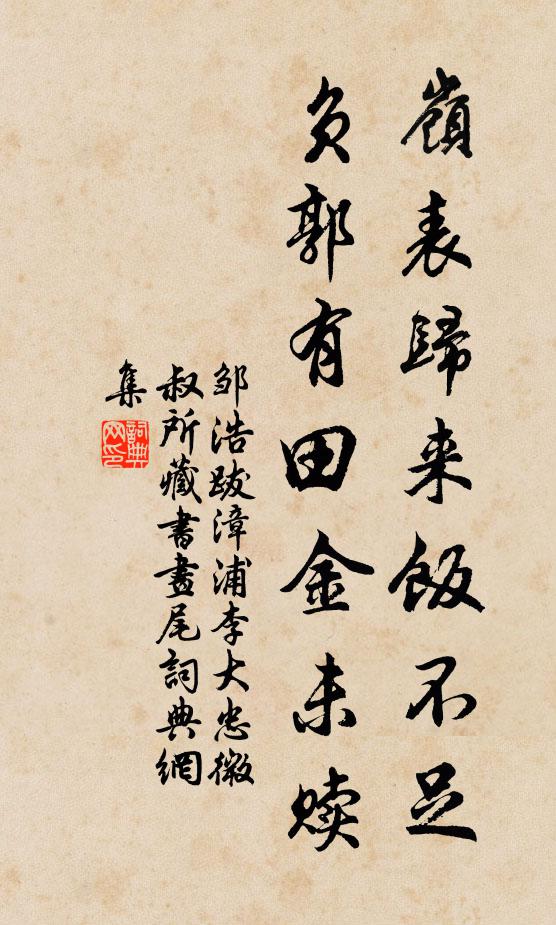 嶺表歸来飯不足
负郭有田金未赎
邹浩跋漳浦李大忠微
叔所藏書畫尾詞典網
集
詞典
网印